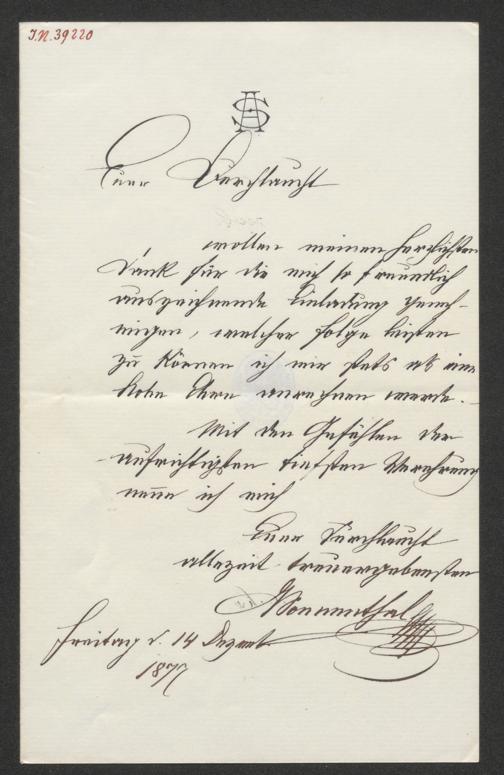 I.N. 39220
AS
Euer Durchlaucht
wollen meinen herzlichsten
Dank für die mich so freundlich
auszeichnende Einladung geneh-
migen, welcher Folge leisten
zu können ich mir stets als eine
hohe Ehre anrechnen werde.
Mit den Gefühlen der
aufrichtigsten tiefsten Verehrung
nenne ich mich
Euer Durchlaucht
allezeit treuergebensten
Sonnenthal
Freitag d. 14 Dezemb.
1877